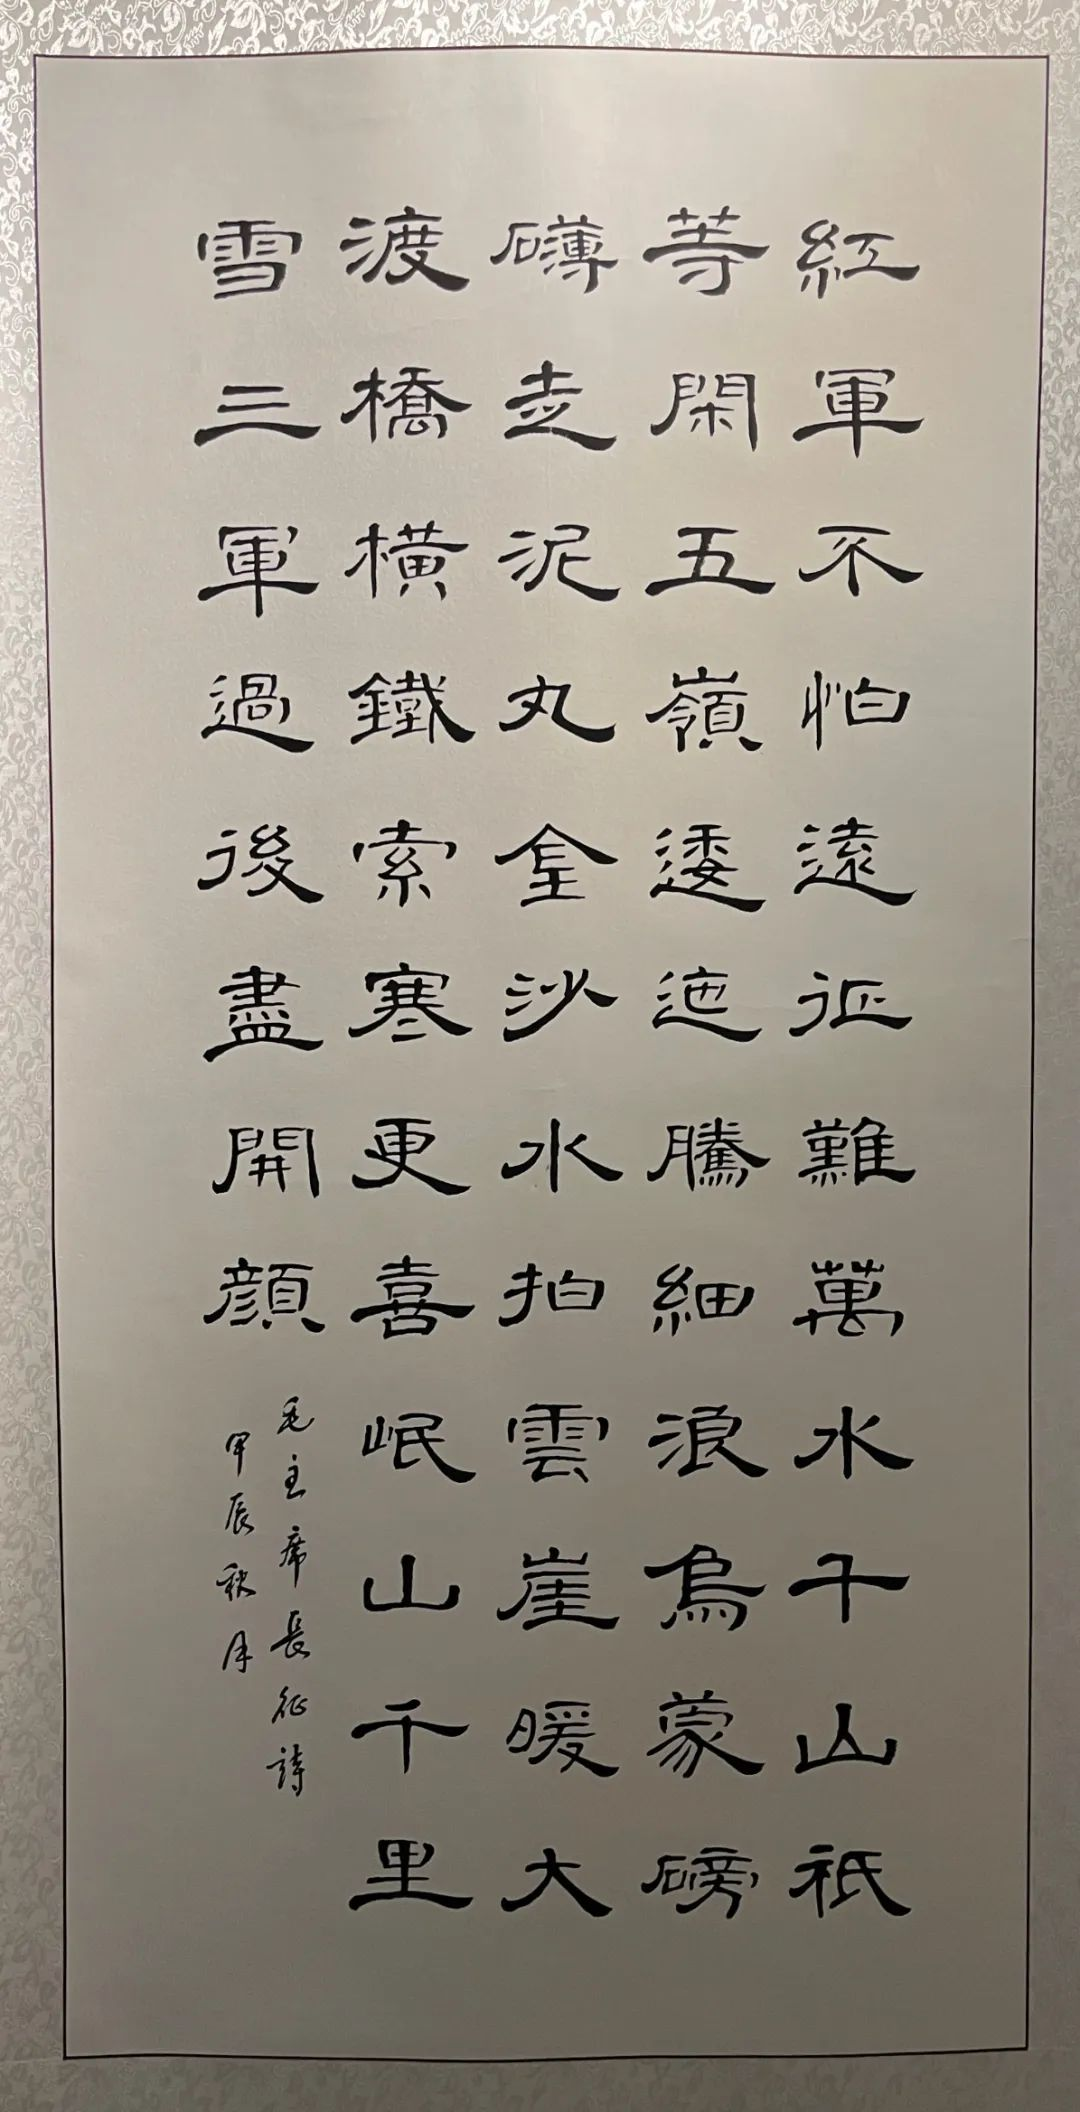 紅軍不怕遠征難萬水千山祇
等閑五嶺逶迤騰細浪烏蒙磅
礴走泥丸金沙水拍雲崖暖大
渡橋橫鐵索寒更喜岷山千里
雪三軍過後盡開顔
毛主席長征詩
甲辰秋月